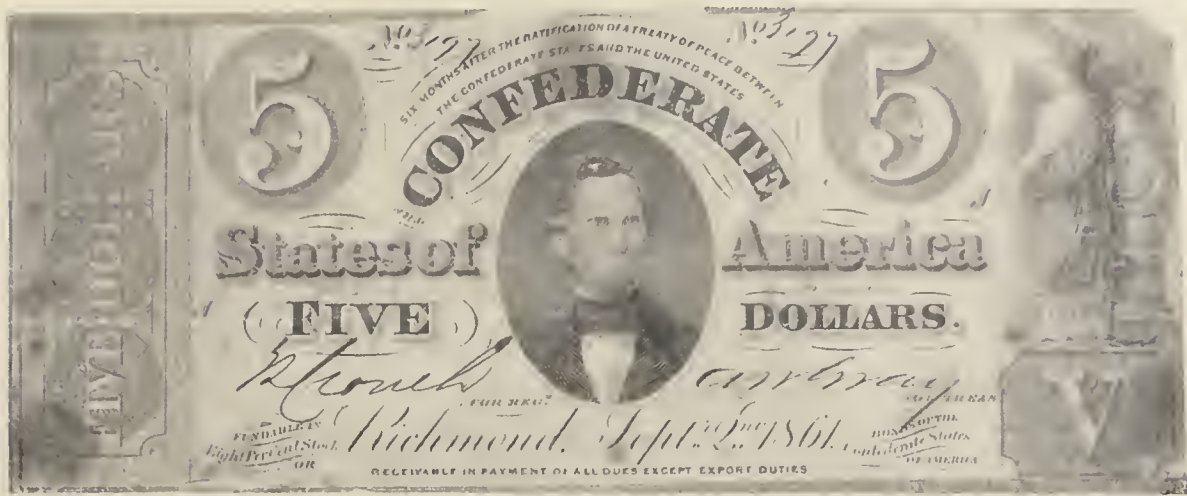 No 3,177 No 3,177
SIX MONTHS AFTER THE RATIFICATION OF A TREATY OF PEACE BETWEEN
THE CONFEDERATE STATES AND THE UNITED STATES
5 CONFEDERATE 5
WILL
States of America
FIVE DOLLARS.
FOR REGR
FIVE DOLLARS
Richmond, Sept. 2nd 1861.
FUNDABLE IN
Eight Per Cent Stock
OR
BONDS OF THE
Confederate States
OF AMERICA
RECEIVABLE IN PAYMENT OF ALL DUES EXCEPT EXPORT DUTIES
V